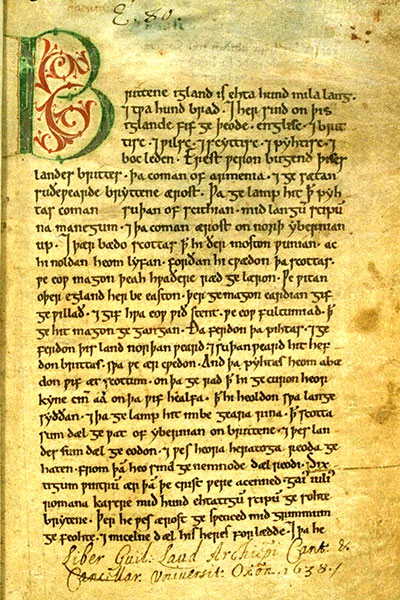 E. 80.
Brittene igland is ehta hund mila lang.
⁊ tƿa hund brad. ⁊ her sind on þis
iglande fif ge þeode. englisc. ⁊ brit
tisc. ⁊ ƿilsc. ⁊ scyttisc. ⁊ pyhtisc. ⁊
boc leden. Erest ƿeron bugend þises
landes brittes. þa coman of armenia. ⁊ ge sætan
suðeƿearde bryttene ærost. Þa ge lamp hit ꝥ pyh
tas coman suþan of scithian. mid langū scipū
na manegum. ⁊ þa coman ærost on norþ ybernian
up. ⁊ þær bædo scottas ꝥ hi ðer moston ƿunian. ac
hi noldan heom lyfan. forðan hi cƿædon þa scottas.
ƿe eoƿ magon þeah hƿaðere ræd ge læron. Ƿe ƿitan
oþer egland her be easton. þer ge magon eardian gif
ge ƿillað. ⁊ gif hƿa eoƿ ƿið stent. ƿe eoƿ fultumiað. ꝥ
ge hit magon ge gangan. Ða ferdon þa pihtas. ⁊ ge
ferdon þis land norþan ƿeard. ⁊ suþan ƿeard hit hef
don brittas. sƿa ƿe ær cƿedon. And þa pyhtas heom abæ
don ƿif æt scottum. on þa ge rad ꝥ hi ge curon heora
kyne cinn aa on þa ƿif healfa. ꝥ hi heoldon sƿa lange
syððan. ⁊ þa ge lamp hit imbe geara rina. ꝥ scotta
sum dæl ge ƿat of ybernian on brittene. ⁊ þes lan
des sum dæl ge eodon. ⁊ ƿes heora heratoga reoda ge
haten. from þā heo sind ge nemnode dæl reodi. Six
tigum ƿintrum ær þā þe crist ƿere acenned. gaiꝰ iuliꝰ
romana kasere mid hund ehtatigū scipū ge sohte
brytene. Þer he ƿes ærost ge sƿenced mid grimmum
ge feohte. ⁊ micelne dæl his heres for lædde. ⁊ þa he
Liber Guil: Laud Archiepi Cant. &
Cancellar. Universit. Oxon. 1638.